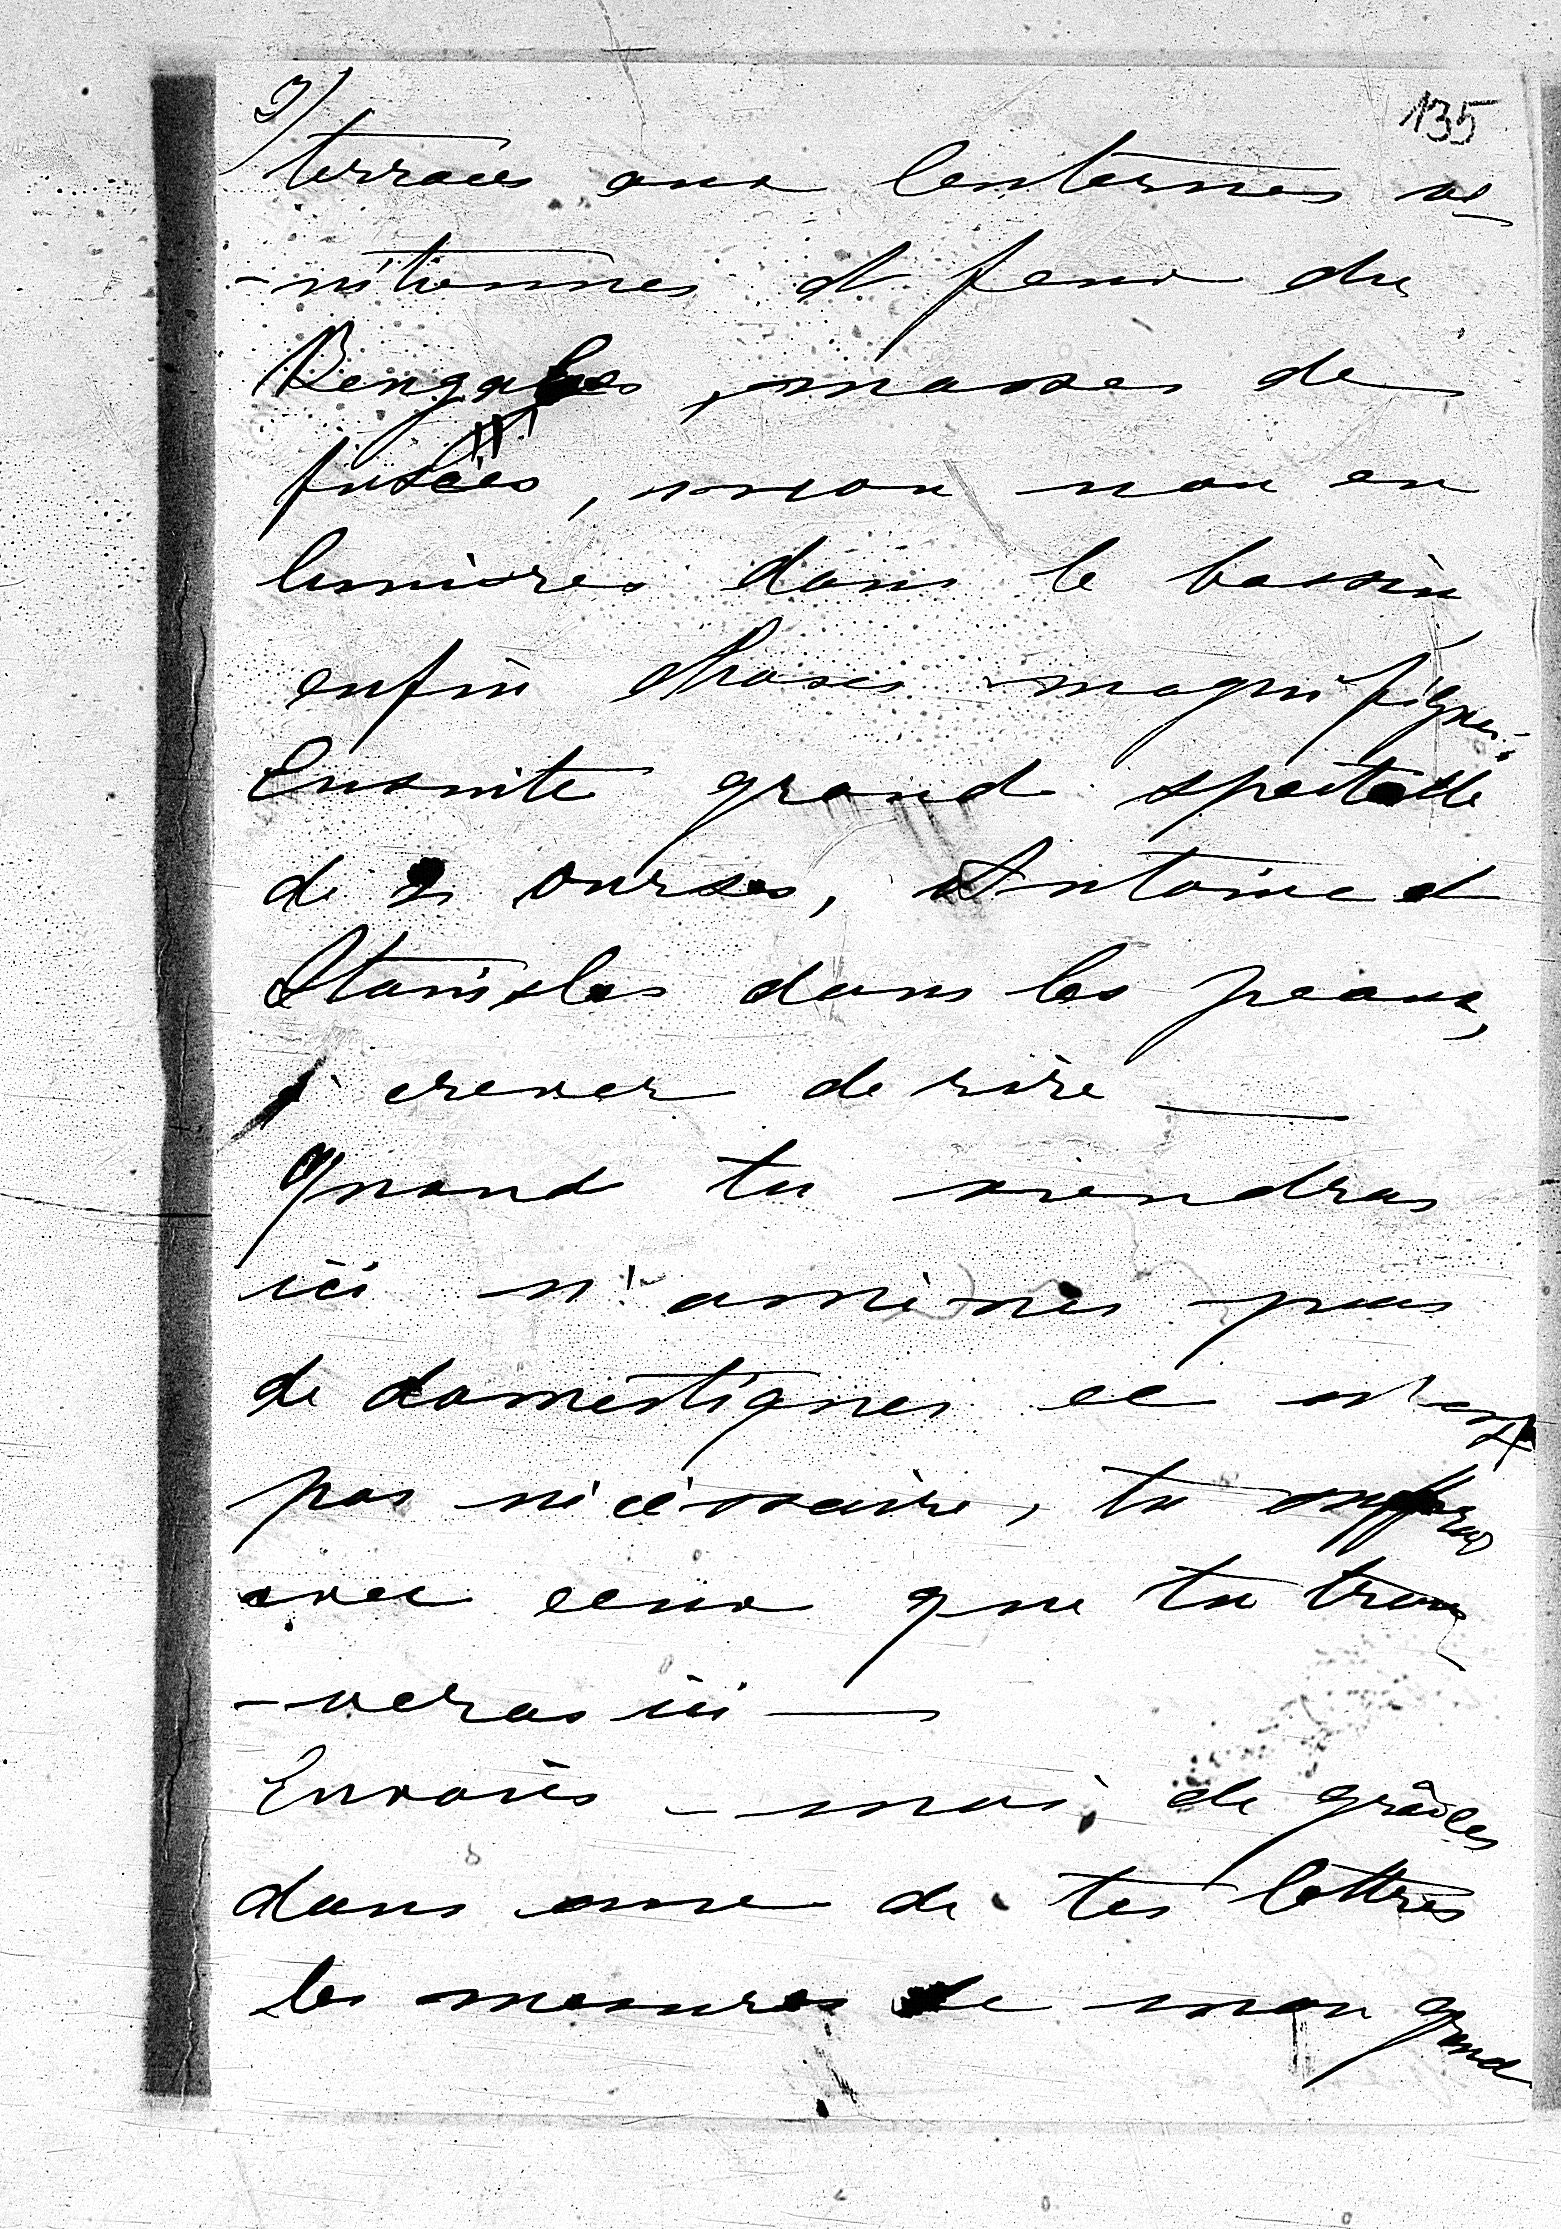 2/
135
terraces aux lanternes vé-
-nitiennes et feux du
Bengales, masses de
fusées, mon nom en
lumières dans le bassin
enfin choses magnifiques.
Ensuite grand spectacle
de 2 ourses, Antoine et
Stanislas dans les peaux,
à crever de rire —
Quand tu viendras
ici n'amènes pas
de domestiques ce n'est
pas nécéssaire, tu
avec ceux que tu trou
-veras ici —
Envoiés-moi de grâce
dans une de tes lettres
les mesures de mon grand